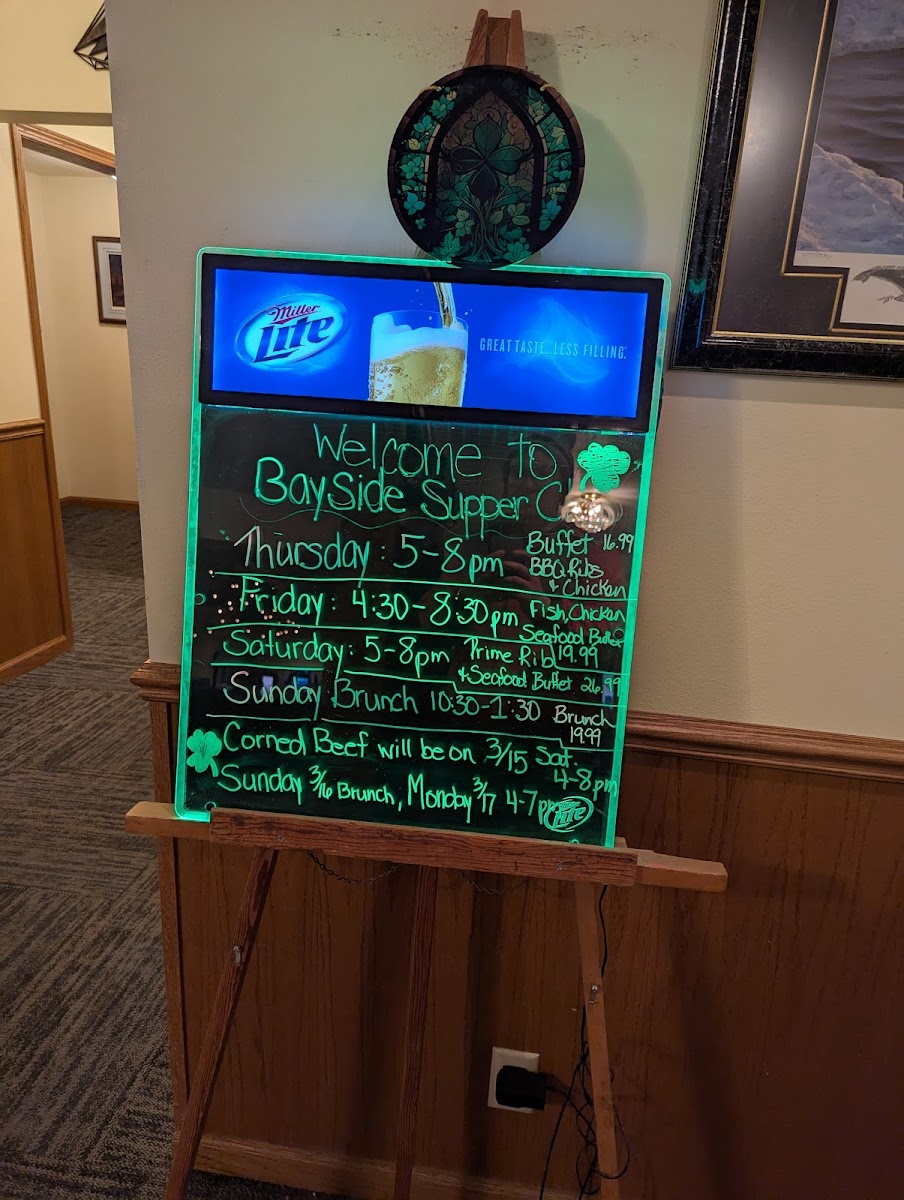 Miller
Lite
GREAT TASTE...LESS FILLING.
Welcome to
Bayside Supper
Thursday: 5-8pm Buffet 16.99
BBQ Ribs
& Chicken
Friday: 4:30-8:30pm Fish, Chicken
Seafood Buffet
Saturday: 5-8pm Prime Rib 19.99
& Seafood Buffet 26.99
Sunday Brunch 10:30-1:30 Brunch
19.99
Corned Beef will be on 3/15 Sat.
4-8pm
Sunday 3/16 Brunch, Monday 3/17 4-7pm
Lite